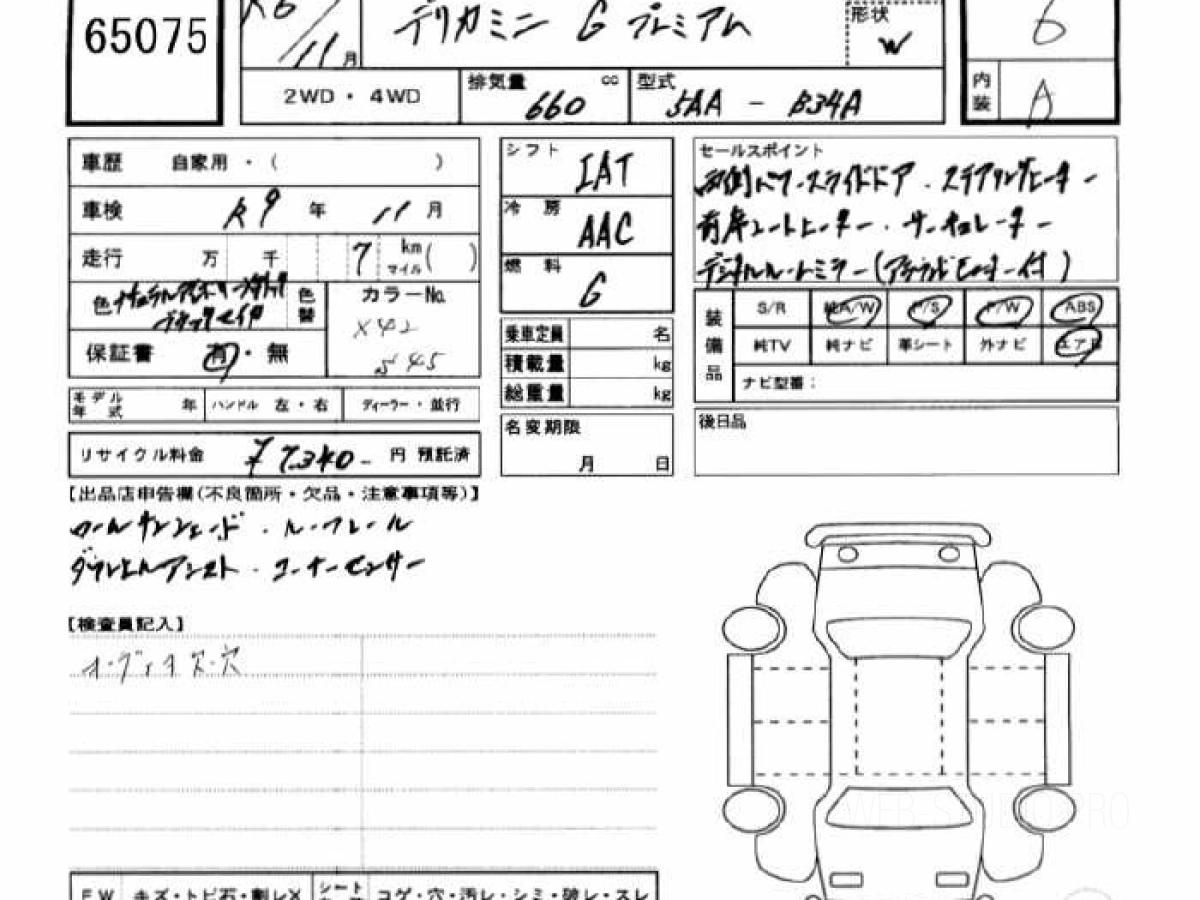 65075
R6/11月
デリカミニ G プレミアム
形状
W
6
2WD・4WD
排気量 660 cc
型式 5AA - B34A
内装 A
車歴 自家用・( )
車検 R9年 11月
走行 万 千 7 km マイル( )
色 ナチュラルアイボリーメタリック
ブラックマイカ
色替
カラーNo.
X42
545
保証書 有・無
モデル年式 年 ハンドル 左・右 ディーラー・並行
リサイクル料金 ¥7,340- 円 預託済
シフト IAT
冷房 AAC
燃料 G
乗車定員 名
積載量 kg
総重量 kg
名変期限
月 日
セールスポイント
両側パワースライドドア・ステアリングヒーター
前席シートヒーター・サーキュレーター
デジタルルームミラー(アラウンドモニター付)
装備品
S/R 純A/W P/S P/W ABS
純TV 純ナビ 革シート 外ナビ エアB
ナビ型番:
後日品
【出品店申告欄(不良箇所・欠品・注意事項等)】
ロールサンシェード・ルーフレール
ダウンヒルアシスト・コーナーセンサー
【検査員記入】
オーディオ欠・穴
FW キズ・トビ石・割レX シート コゲ・穴・汚レ・シミ・破レ・スレ
WEB-S PRO